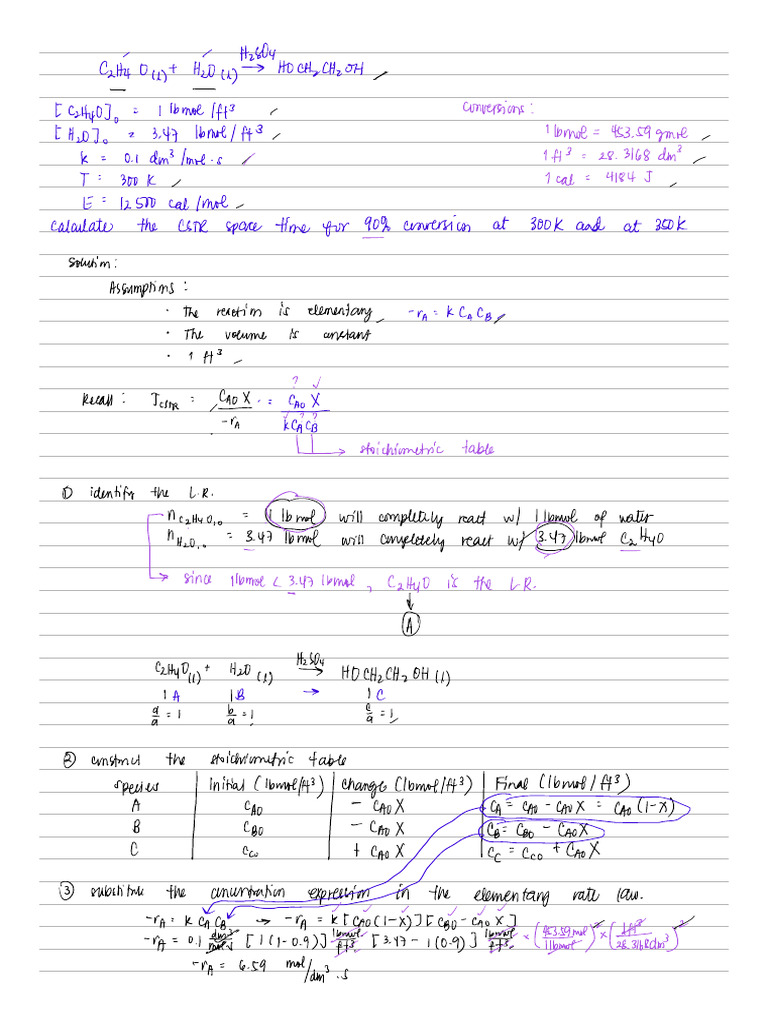 C₂H₄O(l) + H₂O(l) —H₂SO₄→ HOCH₂CH₂OH
[C₂H₄O]₀ = 1 lbmol/ft³
Conversions:
[H₂O]₀ = 3.47 lbmol/ft³
1 lbmol = 453.59 gmol
k = 0.1 dm³/mol·s
1 ft³ = 28.3168 dm³
T = 300 K
1 cal = 4184 J
E = 12500 cal/mol
Calculate the CSTR space time for 90% conversion at 300K and at 350K
Solution:
Assumptions:
· The reaction is elementary, -rA = k CA CB
· The volume is constant
· 1 ft³
Recall: τCSTR = CA0 X / -rA = CA0 X / k CA CB
? ✓
✓ ? ?
→ stoichiometric table
① identify the L.R.
nC₂H₄O,0 = 1 lbmol will completely react w/ 1 lbmol of water
nH₂O,0 = 3.47 lbmol will completely react w/ 3.47 lbmol C₂H₄O
→ since 1 lbmol < 3.47 lbmol, C₂H₄O is the L.R.
↓
A
C₂H₄O(l) + H₂O(l) —H₂SO₄→ HOCH₂CH₂OH(l)
1 A 1 B → 1 C
a/a = 1 b/a = 1 c/a = 1
② construct the stoichiometric table
Species Initial (lbmol/ft³) Change (lbmol/ft³) Final (lbmol/ft³)
A CA0 - CA0X CA = CA0 - CA0X = CA0(1-X)
B CB0 - CA0X CB = CB0 - CA0X
C CC0 + CA0X CC = CC0 + CA0X
③ substitute the concentration expression in the elementary rate law.
-rA = k CA CB → -rA = k[CA0(1-X)][CB0 - CA0X]
-rA = 0.1 dm³/mol·s [1(1-0.9)] lbmol/ft³ [3.47 - 1(0.9)] lbmol/ft³ × (453.59 mol/1 lbmol)² × (1 ft³/28.3168 dm³)²
-rA = 6.59 mol/dm³·s